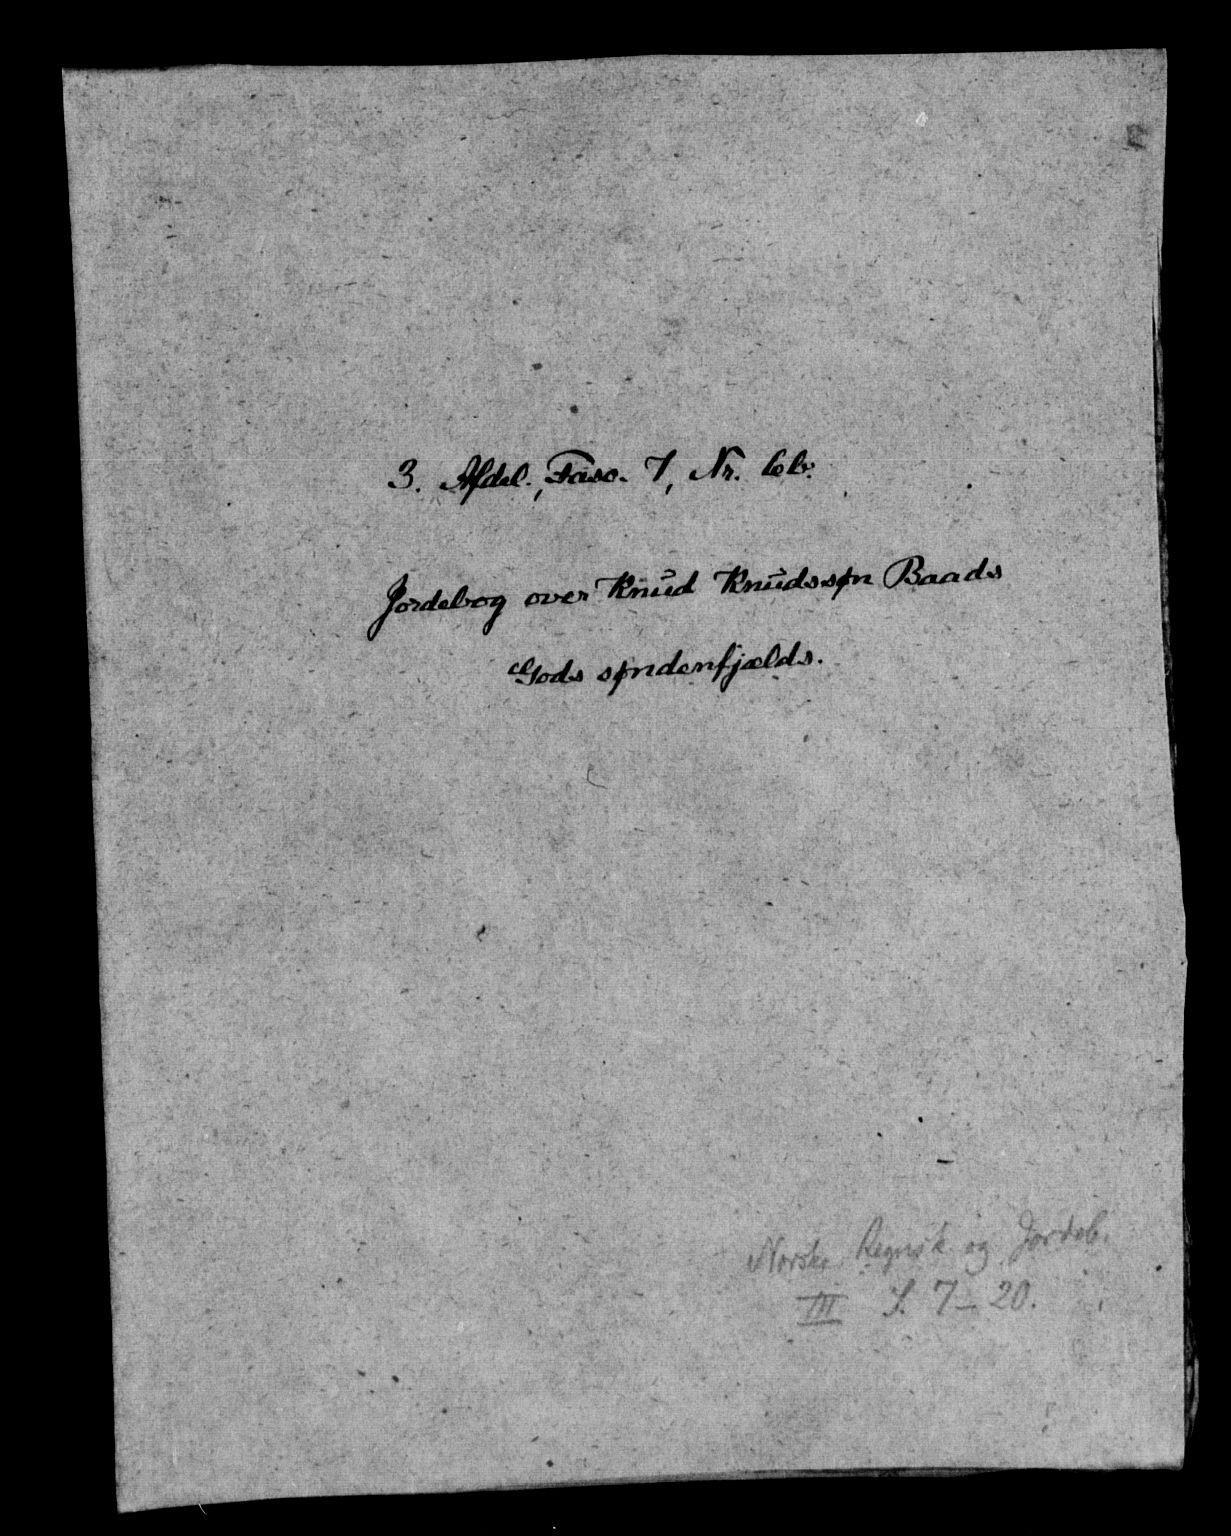 3. Afdel., Fasc. 7, Nr. 6b.
Jordebog over Knud Knudssøn Baads
Gods søndenfjælds.
Norske Regnsk og Jordeb.
III S. 7–20.